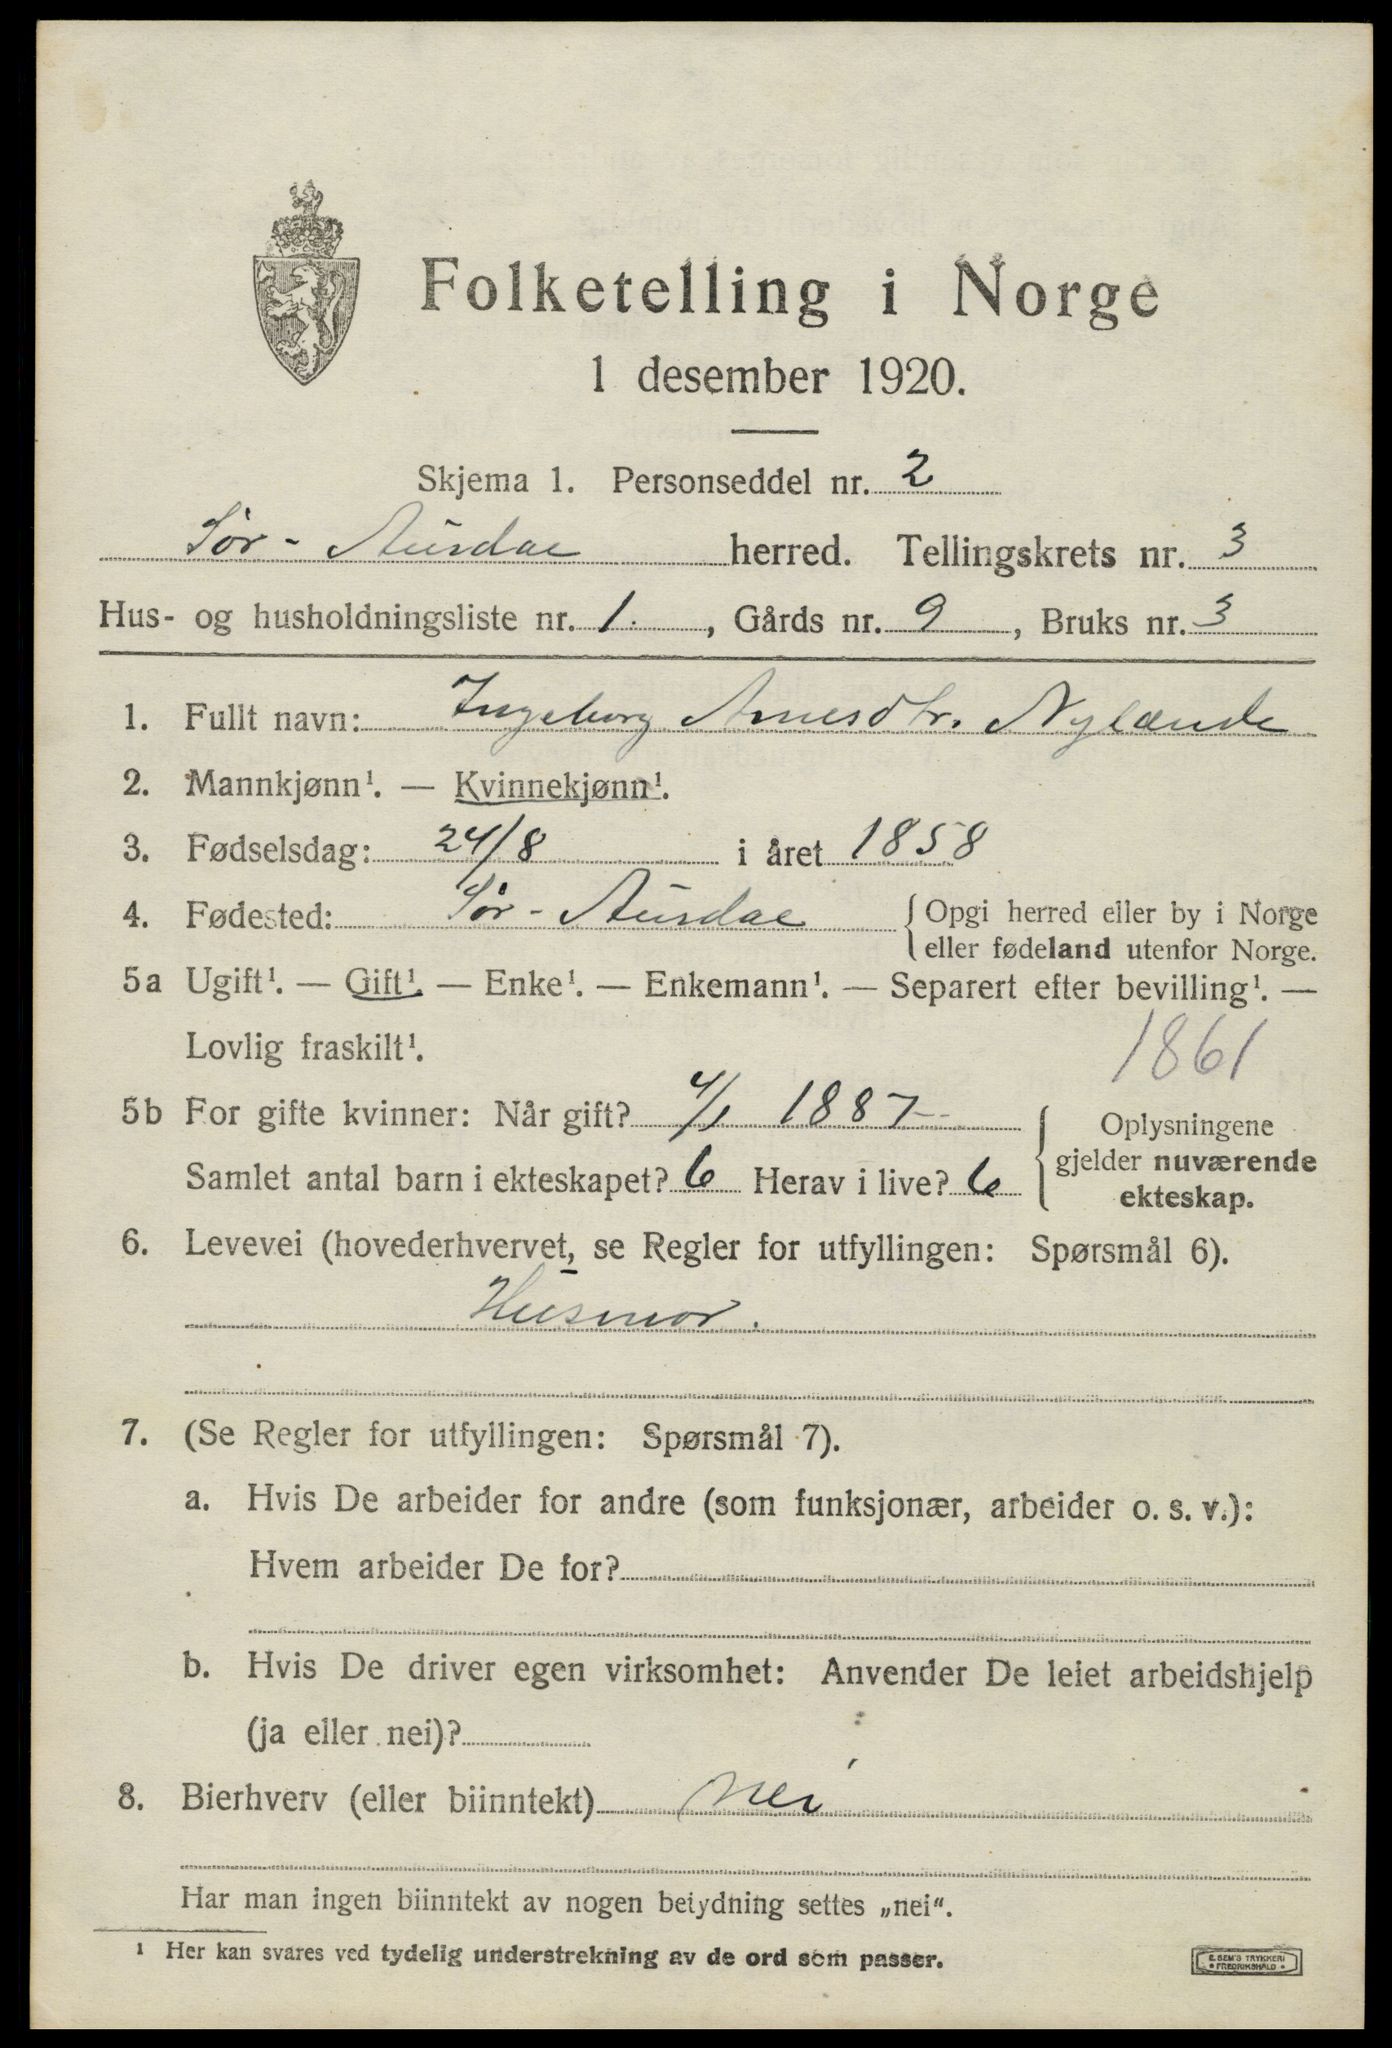 Folketelling i Norge
1 desember 1920.
Skjema 1. Personseddel nr. 2
Sør-Aurdal herred. Tellingskrets nr. 3
Hus- og husholdningsliste nr. 1. , Gårds nr. 9 , Bruks nr. 3
1. Fullt navn: Ingeborg Arnesdtr. Nylænde
2. Mannkjønn¹. — Kvinnekjønn¹.
3. Fødselsdag: 24/8 i året 1858
4. Fødested: Sør-Aurdal { Opgi herred eller by i Norge
eller fødeland utenfor Norge.
5a Ugift¹. — Gift¹. — Enke¹. — Enkemann¹. — Separert efter bevilling¹. —
Lovlig fraskilt¹.
1861
5b For gifte kvinner: Når gift? 4/1 1887
Samlet antal barn i ekteskapet? 6 Herav i live? 6
Oplysningene
gjelder nuværende
ekteskap.
6. Levevei (hovederhvervet, se Regler for utfyllingen: Spørsmål 6).
Husmor.
7. (Se Regler for utfyllingen: Spørsmål 7).
a. Hvis De arbeider for andre (som funksjonær, arbeider o. s. v.):
Hvem arbeider De for?
b. Hvis De driver egen virksomhet: Anvender De leiet arbeidshjelp
(ja eller nei)?
8. Bierhverv (eller biinntekt) nei
Har man ingen biinntekt av nogen betydning settes „nei“.
¹ Her kan svares ved tydelig understrekning av de ord som passer.
E. SEM'S TRYKKERI
FREDRIKSHALD